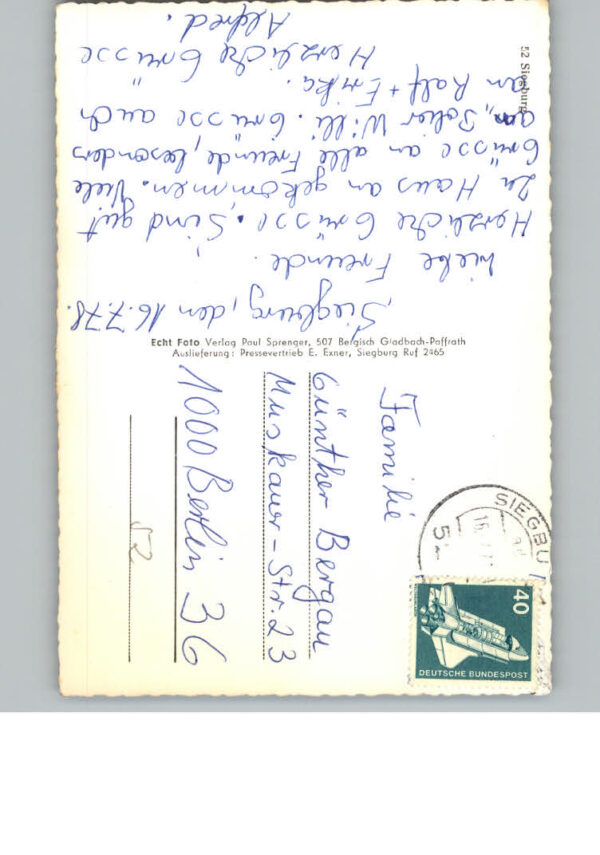 52 Siegburg
Siegburg, den 16.7.78.
Liebe Freunde.
Herzliche Grüsse. Sind gut
zu Haus an gekommen. Viele
Grüsse an alle Freunde, besonders
Willi. Grüsse auch
an Ralf + Erika.
Herzliche Grüsse
Alfred.
Echt Foto Verlag Paul Sprenger, 507 Bergisch Gladbach-Paffrath
Auslieferung: Pressevertrieb E. Exner, Siegburg Ruf 2465
Familie
Günther Bergau
Muskauer-Str. 23
1000 Berlin 36
52
SIEGBU
40
DEUTSCHE BUNDESPOST